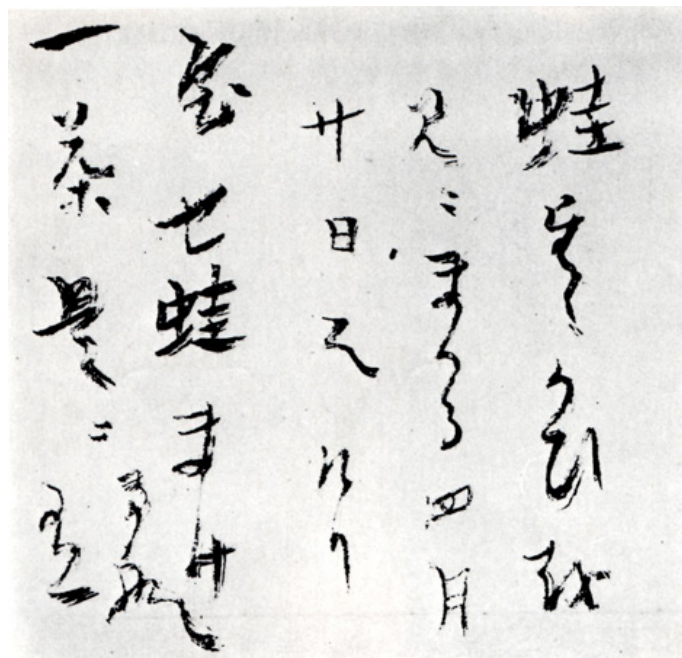 蛙たゝかひを
見ニまかる四月
廿日也けり
やせ蛙まけ
るな
一茶是ニ有